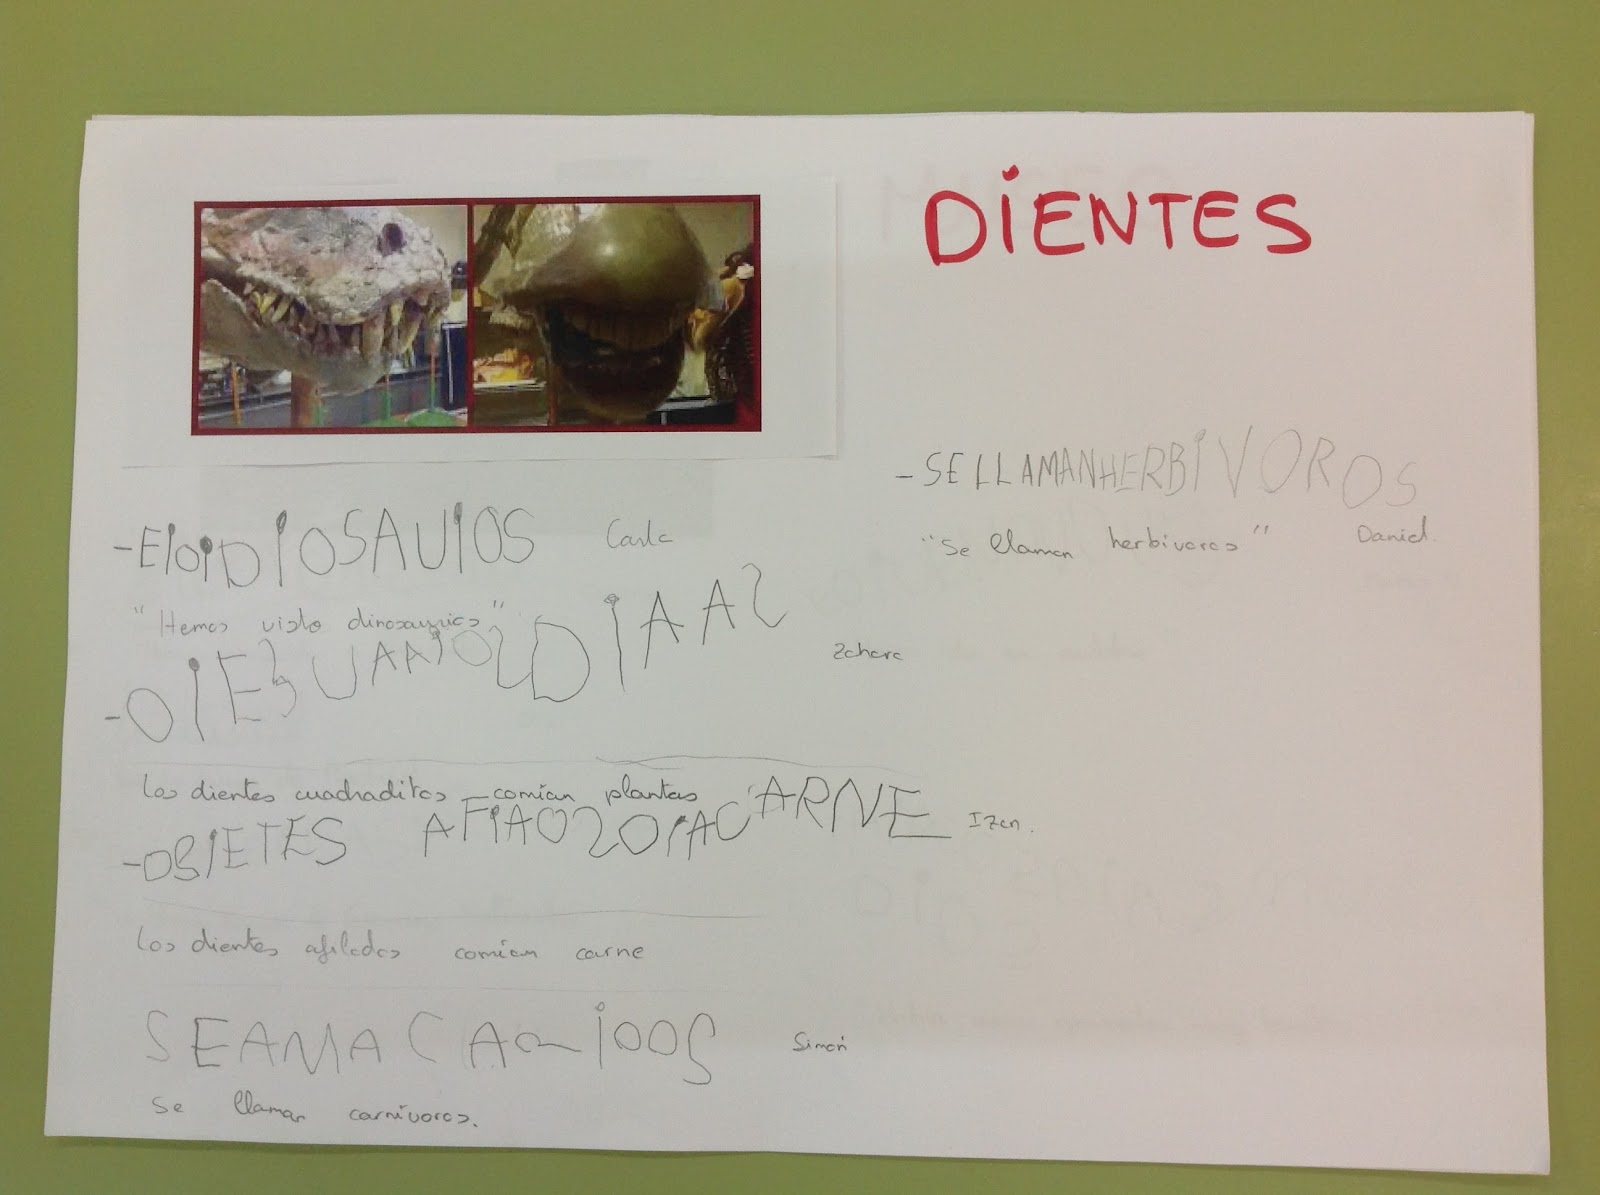 DIENTES
- EIOIDIOSAUIOS Carla
"Hemos visto dinosaurios"
- OIESUAAIOSDIAAS Zahara
Los dientes cuadraditos comían plantas
- OSIETES AFIAOSOIACARNE Izan.
Los dientes afilados comían carne
SEAMACARIOOS Simón
Se llaman carnívoros.
- SELLAMANHERBIVOROS
"Se llaman herbívoros" Daniel.